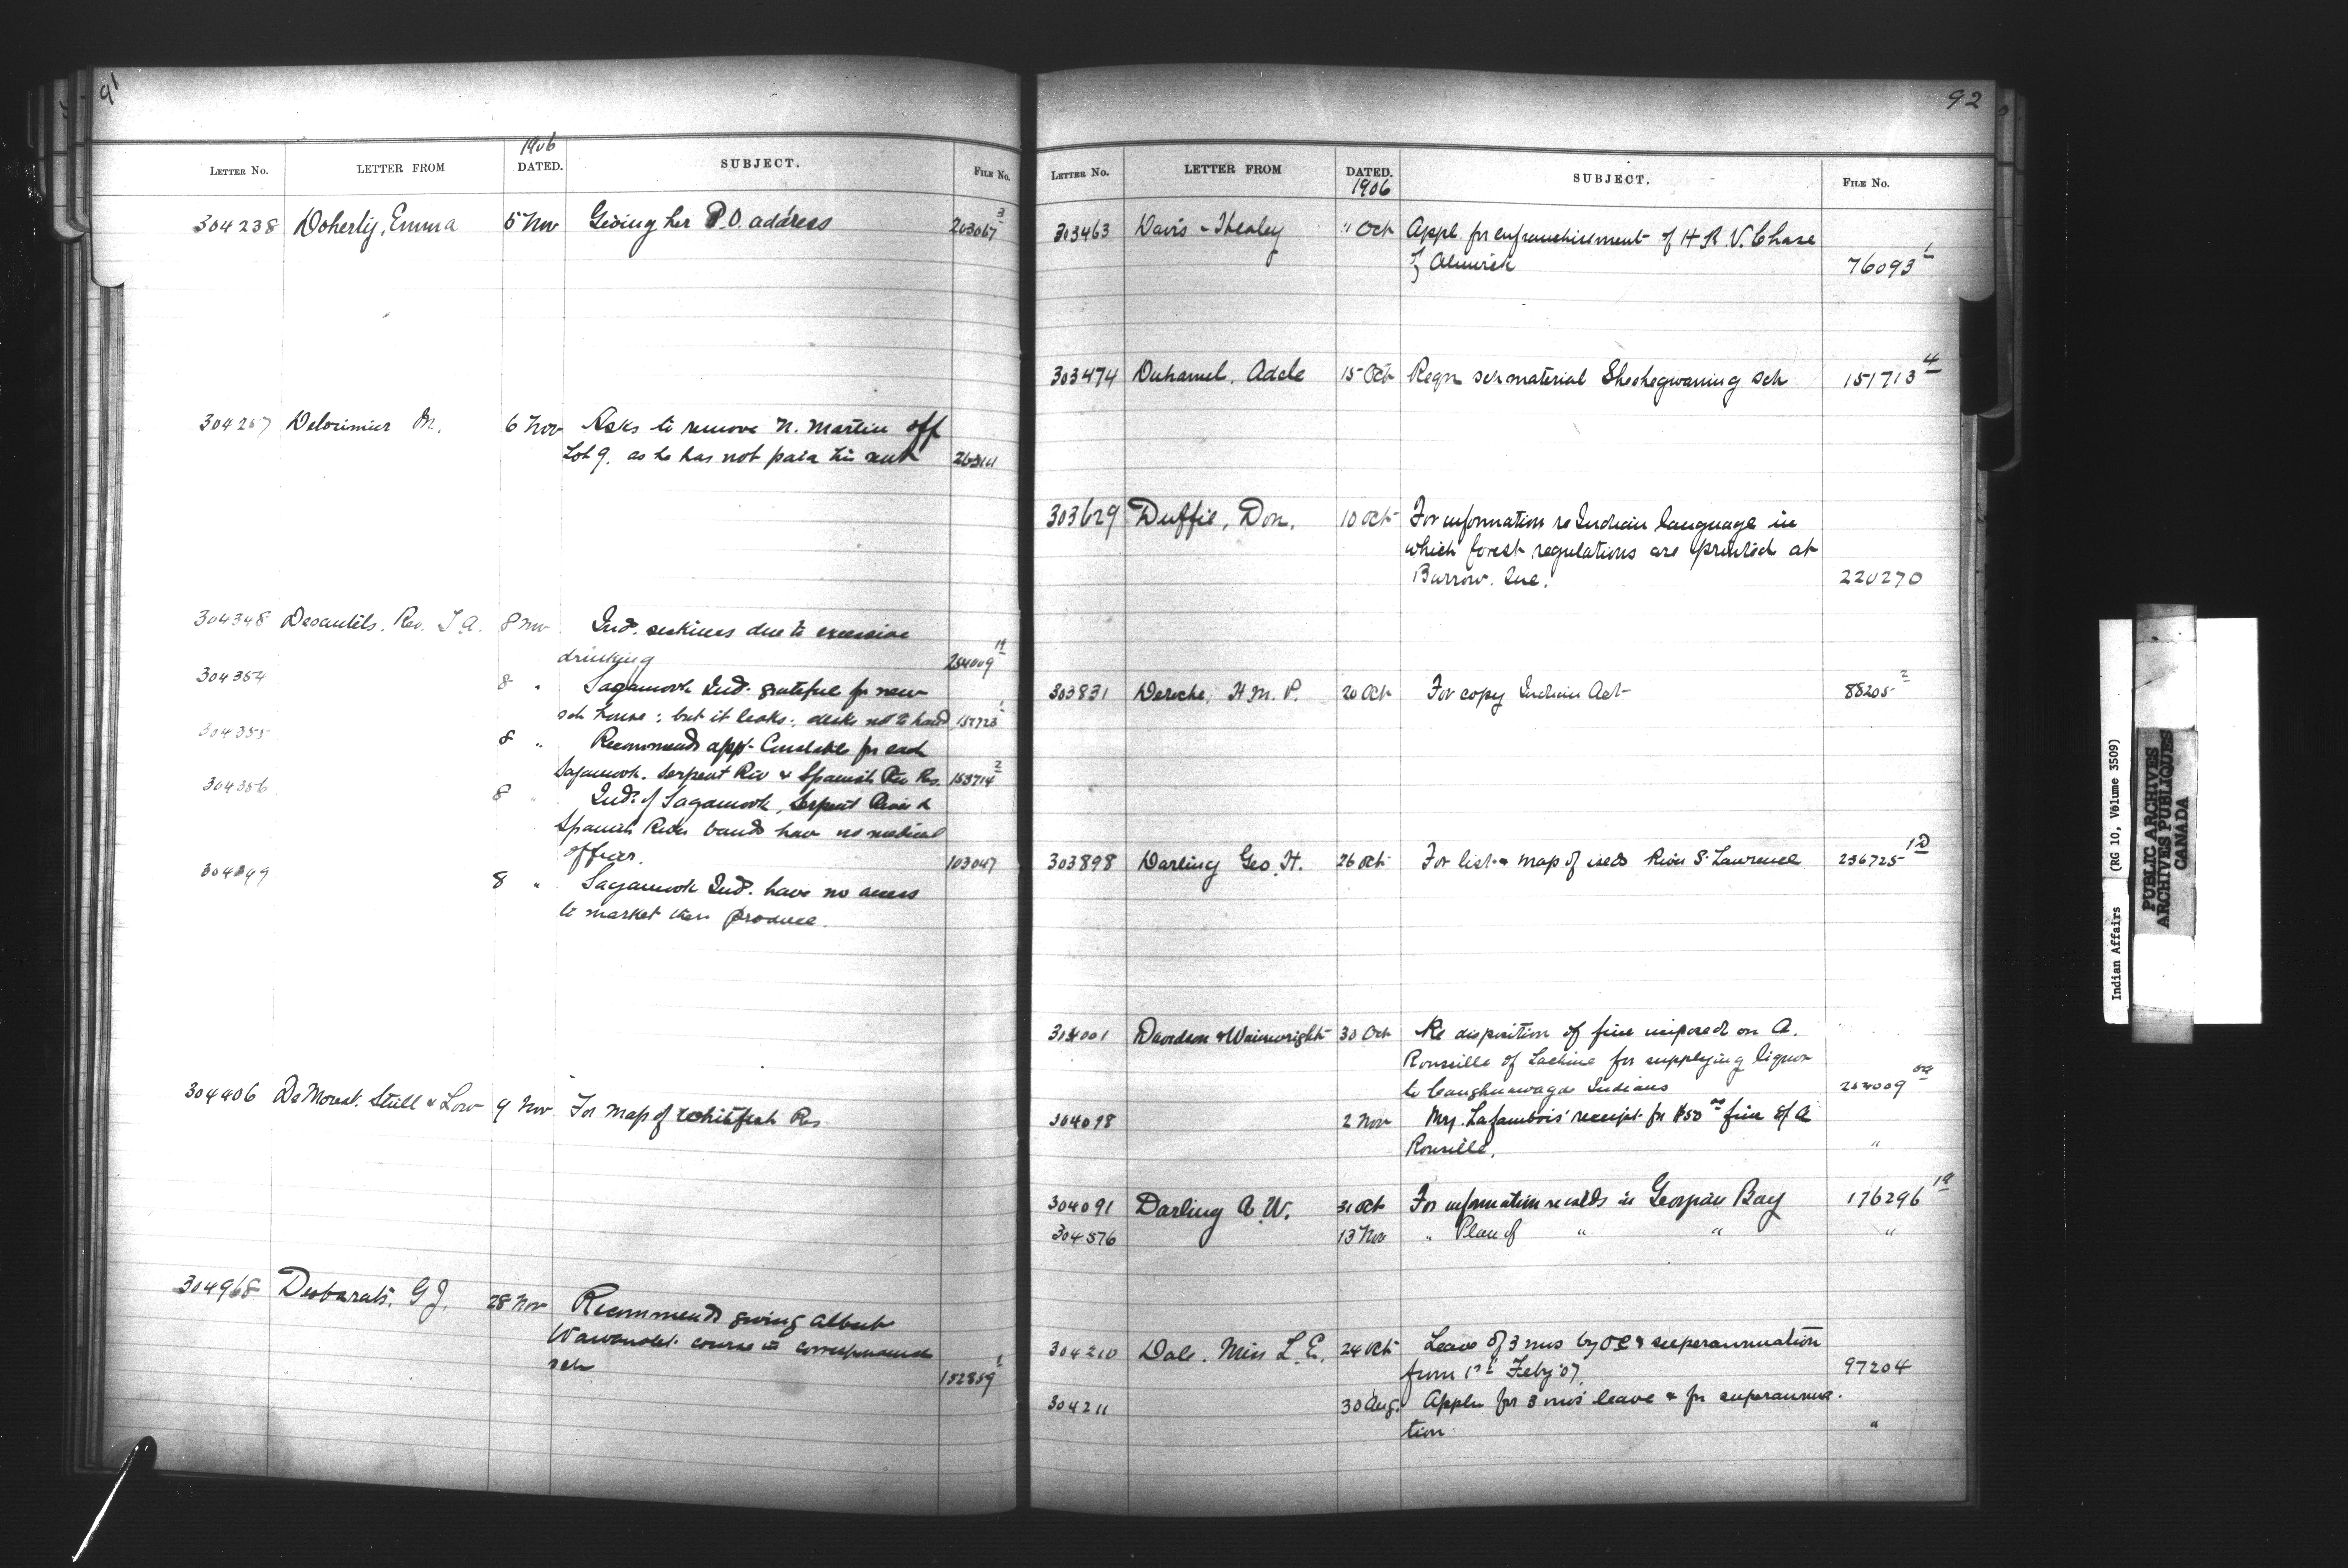 91
1906
LETTER No. LETTER FROM DATED. SUBJECT. FILE No.
304238 Doherty, Emma 5 Nov Giving her P.O. address 203067 3
304267 Delorimier M. 6 Nov Asks to remove N. Martin off
Lot 9. as he has not paid his rent
304348 Desautels. Rev. T A. 8 Nov Ind. sickness due to excessive
drinking 254009 14
304354 8 " Sagamook Ind. grateful for new
sch house; but it leaks; desks not to hand 157723 1
304355 8 " Recommends app. Constable for each
Sagamook. Serpent Riv & Spanish Riv Res. 153714 2
304356 8 " Inds of Sagamook, Serpent River &
Spanish River bands have no medical
officer. 103047
304349 8 " Sagamook Ind. have no access
to market their produce.
304406 DeMorest. Stull & Low 9 Nov For map of Whitefish Res
304968 Desbarats, G J. 28 Nov Recommends giving Albert
course in correspondence
sch 152859 1
92
LETTER No. LETTER FROM DATED. SUBJECT. FILE No.
1906
303463 Davis & Healey " Oct Appl. for enfranchisement of H R. V. Chase
of Alnwick 76093
303474 Duhamel, Adele 15 Oct Reqn sch material Sheshegwaning sch 151713 4
303629 Duffie, Don. 10 Oct For information re Indian language in
which forest regulations are printed at
Barrow. Que. 220270
303831 Deroche, H. M. P. 20 Oct For copy Indian Act 88205 2
303898 Darling Geo. H. 26 Oct For list & map of islds River S. Lawrence 236725 1D
304001 Davidson & Wainwright 30 Oct Re disposition of fine imposed on A.
Ronville of Lachine for supplying liquor
to Caughnawaga Indians 254009
304098 2 Nov receipt for $50 00 fine of A
Ronville. "
304091 Darling A. W. 31 Oct For information re islds in Georgian Bay 176296 1A
304576 13 Nov " Plan of " " "
304210 Dale. Miss L. E. 24 Oct Leave of 3 mos by OC & superannuation
from 1st Feby '07. 97204
304211 30 Aug. Appln for 3 mos leave & for superannua-
tion "
Indian Affairs (RG 10, Volume 3509)
PUBLIC ARCHIVES
ARCHIVES PUBLIQUES
CANADA